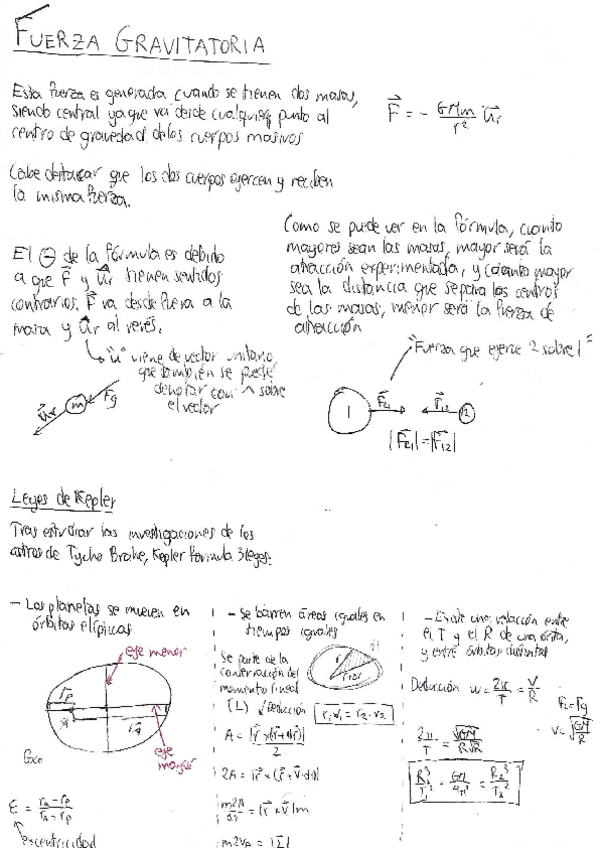 FUERZA GRAVITATORIA
Esta fuerza es generada cuando se tienen dos masas,
siendo central ya que va desde cualquier punto al
centro de gravedad de los cuerpos masivos
F⃗ = - GMm/r² u⃗r
Cabe destacar que los dos cuerpos ejercen y reciben
la misma fuerza.
El ⊖ de la fórmula es debido
a que F⃗ y u⃗r tienen sentidos
contrarios. F⃗ va desde fuera a la
masa y u⃗r al revés.
"u" viene de vector unitario,
que también se puede
denotar con ^ sobre
el vector
u⃗r
m
Fg
Como se puede ver en la fórmula, cuanto
mayores sean las masas, mayor será la
atracción experimentada, y cuanto mayor
sea la distancia que separa los centros
de las masas, menor será la fuerza de
atracción
"Fuerza que ejerce 2 sobre 1"
1 F⃗21 F⃗12 2
|F⃗21| = |F⃗12|
Leyes de Kepler
Tras estudiar las investigaciones de los
astros de Tycho Brahe, Kepler formula 3 leyes:
- Los planetas se mueven en
órbitas elípticas
eje menor
rp
rA
eje
mayor
ε = ra - rp / ra + rp
excentricidad
- Se barren áreas iguales en
tiempos iguales
Se parte de la
conservación del
momento lineal
(L) ↓ Deducción
r1·v1 = r2·v2
A = |r⃗ × (r⃗ + d⃗r)| / 2
2A = |r⃗ × (r⃗ + v⃗·dt)|
m2A/dt = |r⃗ × v⃗| m
m2VA = |L⃗|
- Existe una relación entre
el T y el R de una órbita,
y entre órbitas distintas
Deducción w = 2π/T = V/R
Fc = Fg
v = √GM/R
2π/T = √GM / R√R
R1³/T1² = GM/4π² = R2³/T2²